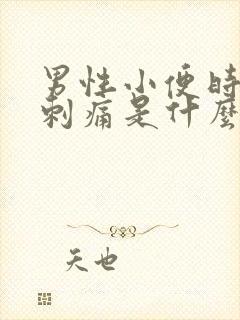 男性小便時
刺痛是什麼
天也